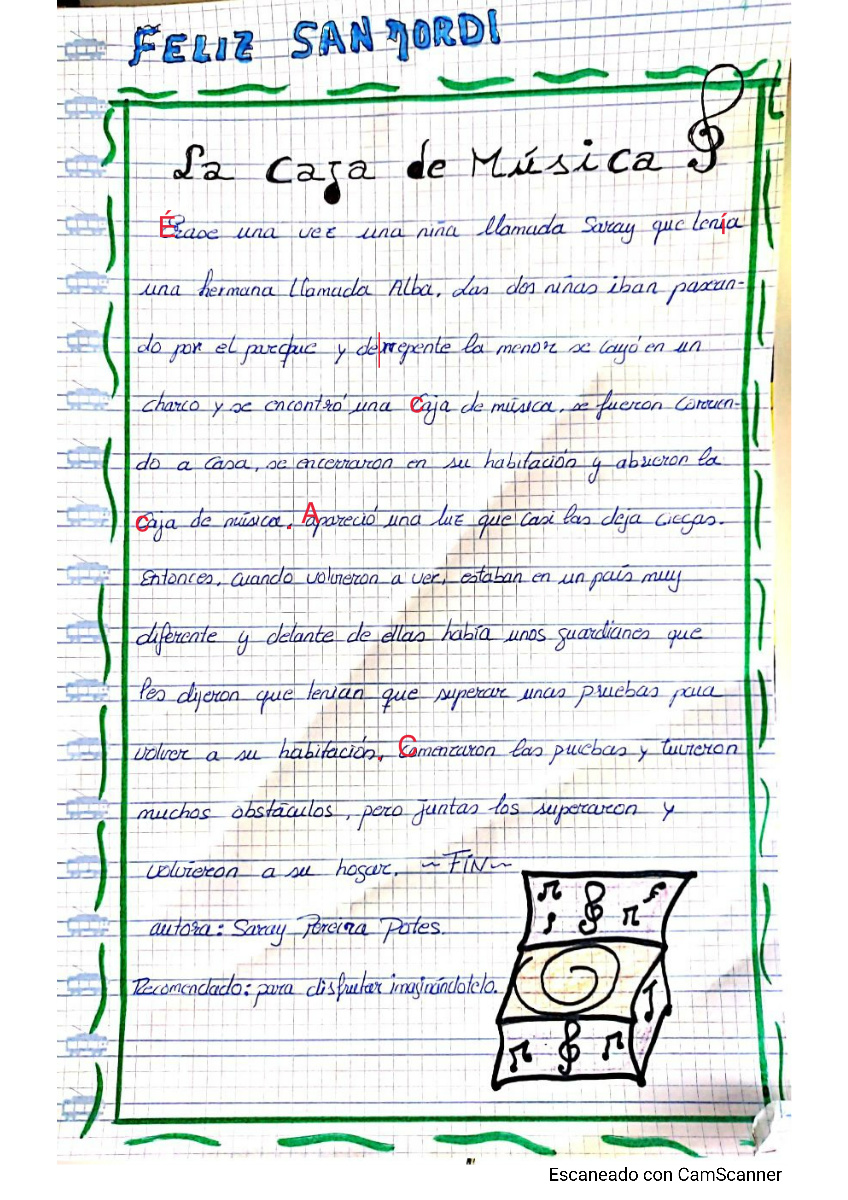 FELIZ SAN JORDI
La Caja de Música
Érase una vez una niña llamada Saray que tenía
una hermana llamada Alba. Las dos niñas iban pasean-
do por el parque y de|rrepente la menor se cayó en un
charco y se encontró una caja de música, se fueron corrien-
do a casa, se encerraron en su habitación y abrieron la
caja de música. Apareció una luz que casi las deja ciegas.
Entonces, cuando volvieron a ver, estaban en un país muy
diferente y delante de ellas había unos guardianes que
les dijeron que tenían que superar unas pruebas para
volver a su habitación. Comenzaron las pruebas y tuvieron
muchos obstáculos, pero juntas los superaron y
volvieron a su hogar. ~FIN~
autora: Saray Pereira Potes.
Recomendado: para disfrutar imaginándotelo.
Escaneado con CamScanner